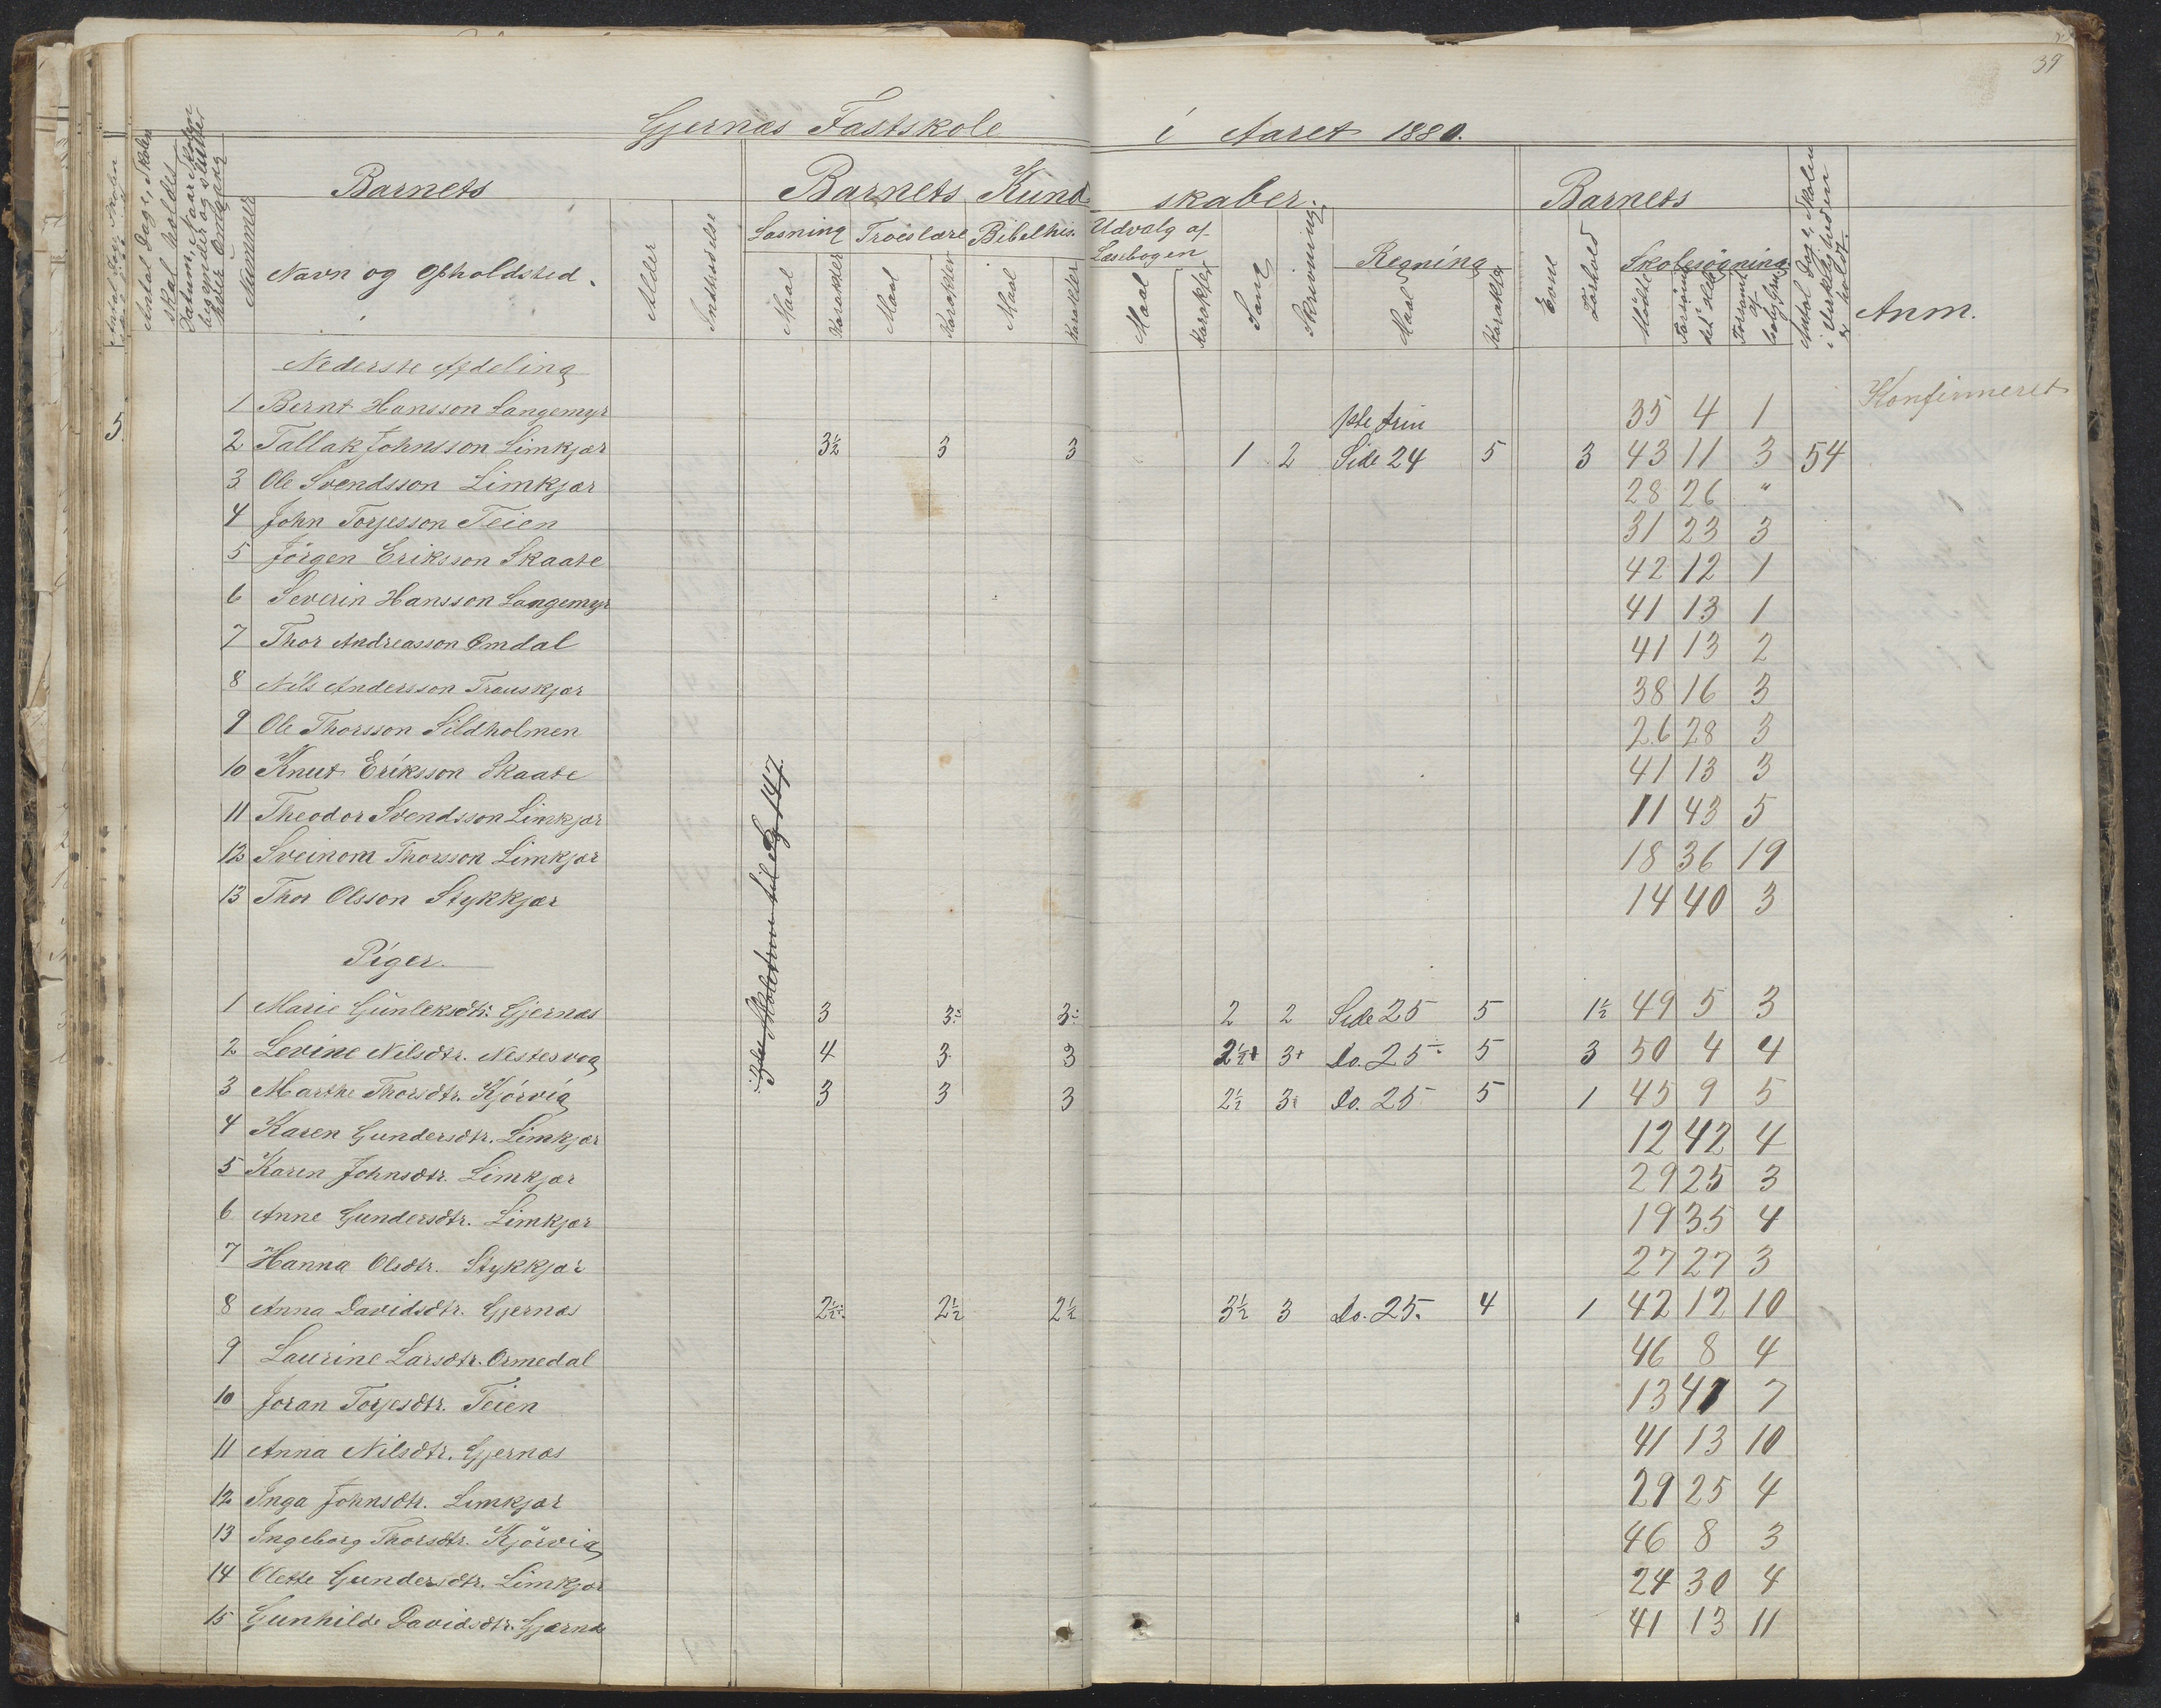 39
Gjernæs Fastskole i Aaret 1880.
Antal Dage, Skolen skal holdes
Datum, naar Skolen begynder og slutter hver Omgang
Nummer
Barnets
Navn og Opholdsted.
Alder
Indtrædelse
Barnets Kundskaber.
Læsning Troeslære Bibelhis. Udvalg af Læsebogen
Maal Karakter Maal Karakter Maal Karakter Maal Karakter Sang Skrivning
Regning
Maal Karakter
Barnets
Evne Forhold
Skolesøgning
Mødte Forsømte det Hele Forsømt af lovl. Grund
Antal Dage, Skolen i Virkeligheden er holdt
Anm.
Nederste Afdeling
5
1 Bernt Hansson Langemyr 1ste Trin 35 4 1 Konfirmeret
2 Tallak Johnsson Limkjær 3½ 3 3 1 2 Side 24 5 3 43 11 3 54
3 Ole Svendsson Limkjær 28 26 "
4 John Torjesson Teien 31 23 3
5 Jörgen Eriksson Skaate 42 12 1
6 Severin Hansson Langemyr 41 13 1
7 Thor Andreasson Omdal 41 13 2
8 Nils Andersson Trouskjær 38 16 3
9 Ole Thorsson Sildholmen 26 28 3
10 Knut Eriksson Skaate 41 13 3
11 Theodor Svendsson Limkjær 11 43 5
12 Sveinom Thorsson Limkjær 18 36 19
13 Thor Olsson Stykkjær 14 40 3
til Pg 147.
Piger.
1 Marie Gunleksdtr. Gjernæs 3 3÷ 3÷ 2 2 Side 25 5 1½ 49 5 3
2 Levine Nilsdtr. Nestervog 4 3 3 2½+ 3+ Do. 25÷ 5 3 50 4 4
3 Marthe Thorsdtr. Kjörvig 3 3 3 2½ 3+ Do. 25 5 1 45 9 5
4 Karen Gundersdtr. Limkjær 12 42 4
5 Karen Johnsdtr. Limkjær 29 25 3
6 Anne Gundersdtr. Limkjær 19 35 4
7 Hanna Olsdtr. Stykkjær 27 27 3
8 Anna Davidsdtr. Gjernæs 2½÷ 2½ 2½ 3½ 3 Do. 25. 4 1 42 12 10
9 Laurine Larsdtr. Ormedal 46 8 4
10 Joran Torjesdtr. Teien 13 41 7
11 Anna Nilsdtr. Gjernæs 41 13 10
12 Inga Johnsdtr. Limkjær 29 25 4
13 Ingeborg Thorsdtr. Kjörvig 46 8 3
14 Olette Gundersdtr. Limkjær 24 30 4
15 Gunhilde Davidsdtr. Gjernæs 41 13 11